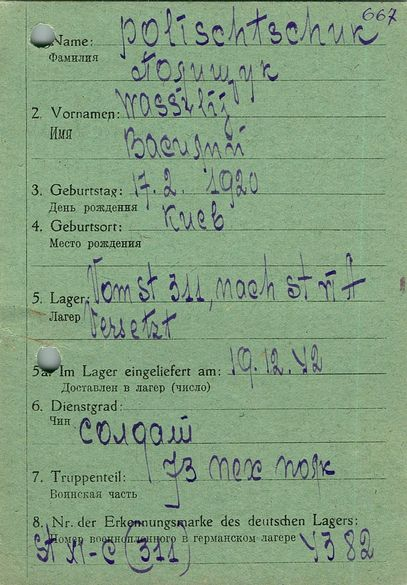 667
Name: Polischtschuk
Фамилия Полищук
2. Vornamen: Wassilij
Имя Василий
3. Geburtstag: 17. 2. 1920
День рождения
4. Geburtsort: Киев
Место рождения
5. Lager: Vom St 311, nach St VI A
Лагерь Versetzt
5a. Im Lager eingeliefert am: 19. 12. 42
Доставлен в лагерь (число)
6. Dienstgrad:
Чин солдат
7. Truppenteil: пех полк
Воинская часть
8. Nr. der Erkennungsmarke des deutschen Lagers:
Номер военнопленного в германском лагере
St XI-C (311) 4382